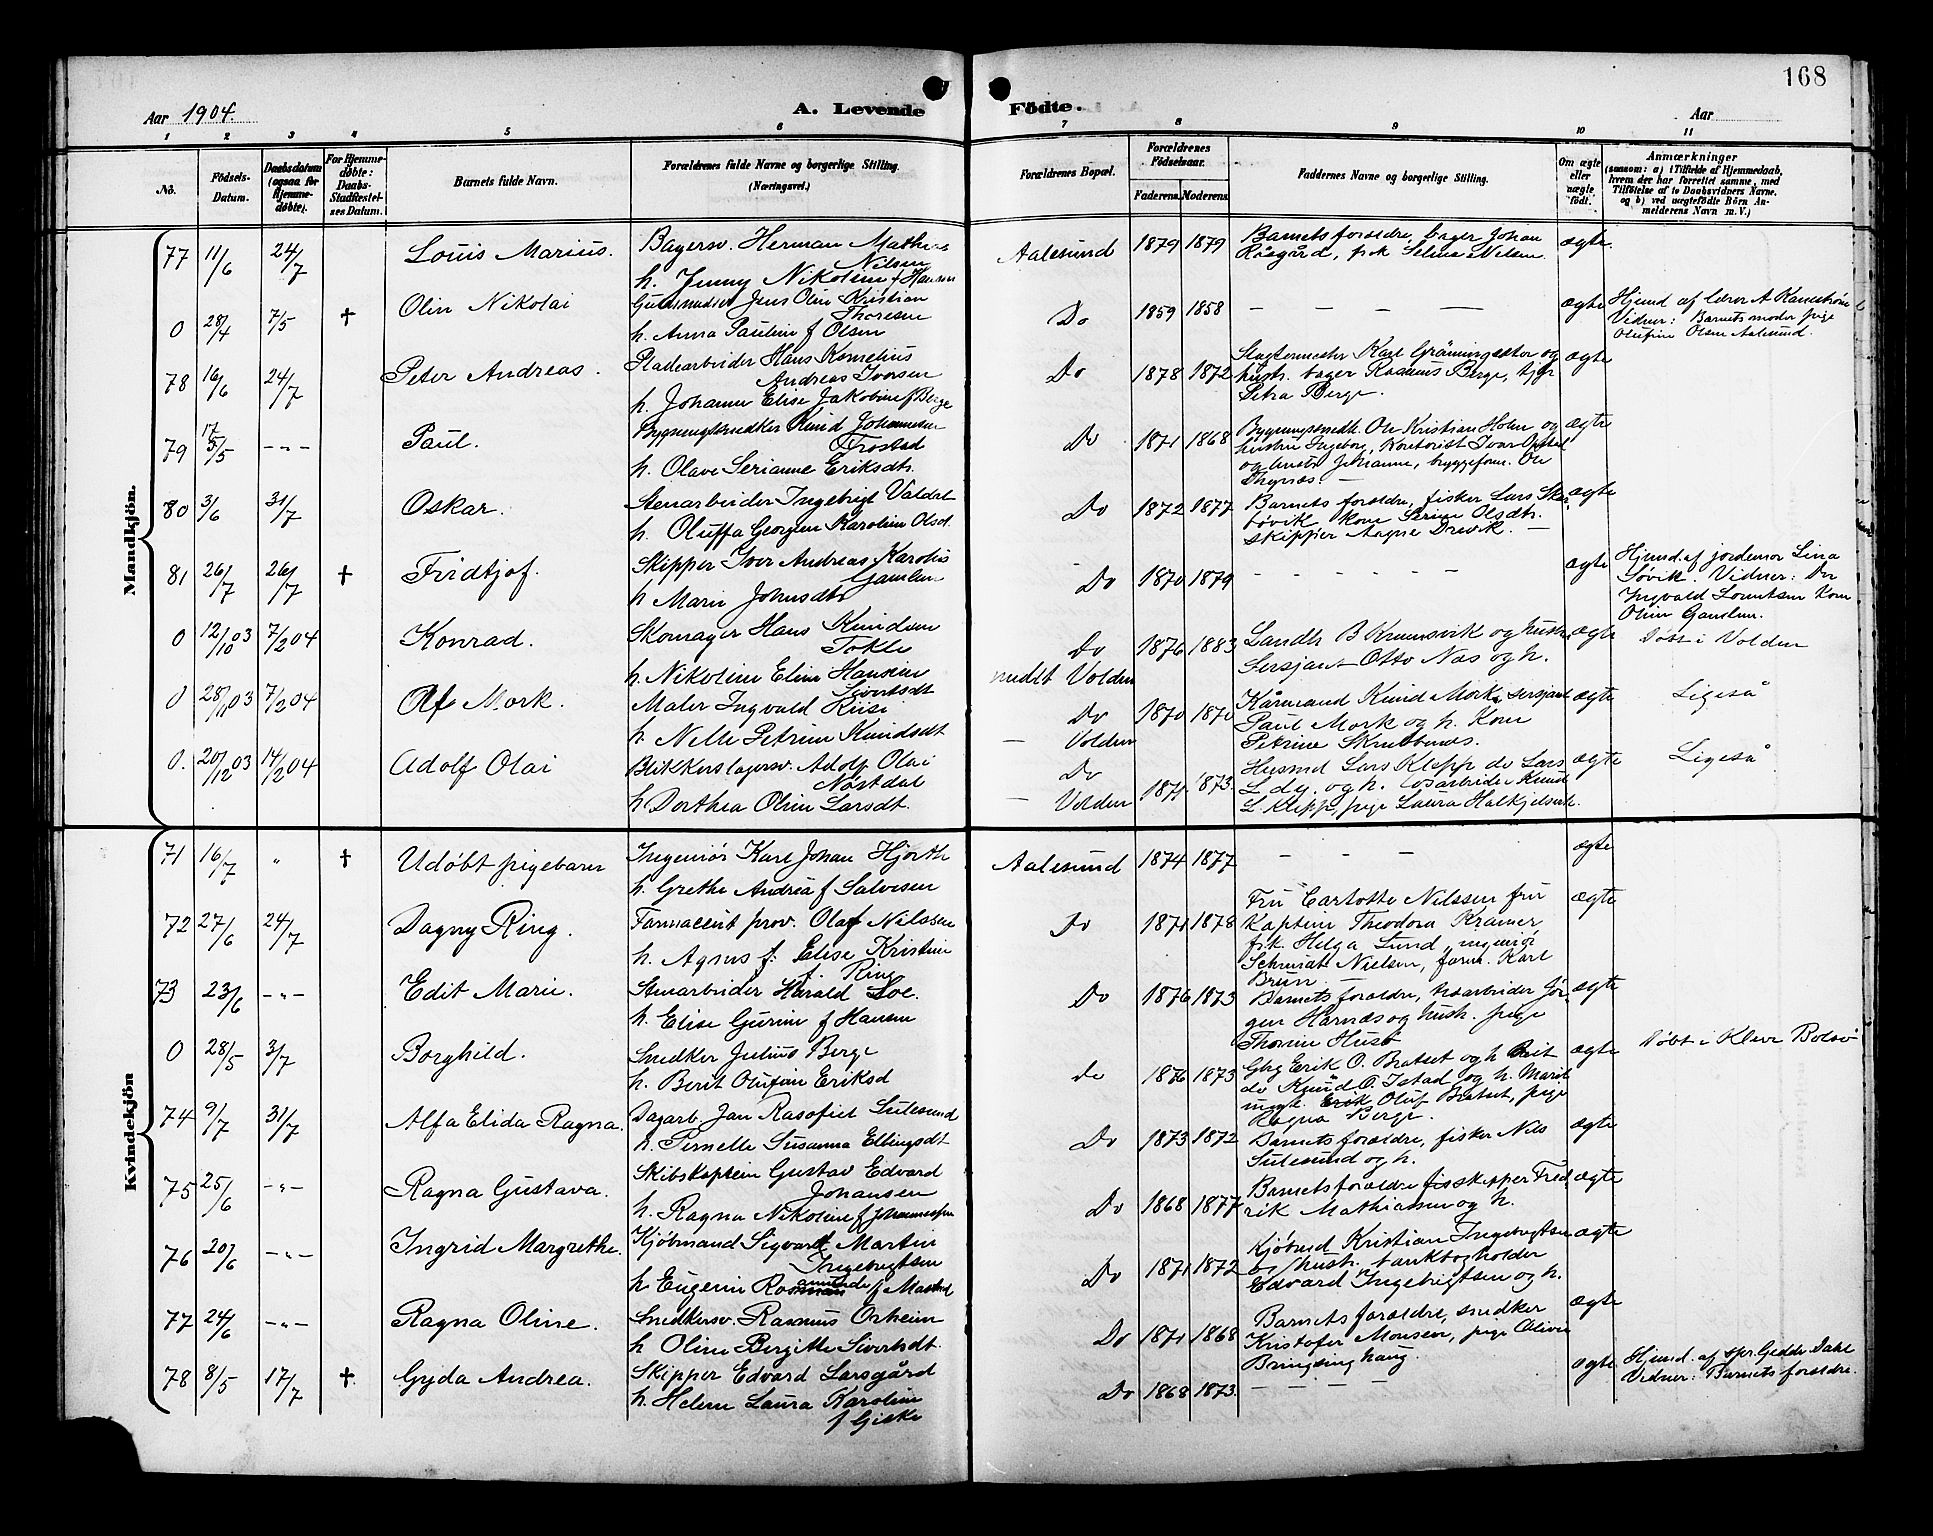 168
Aar 1904.
A. Levende Födte.
Aar
1 2 3 4 5 6 7 8 9 10 11
No.
Födsels-Datum.
Daabsdatum (ogsaa for Hjemmedöbte).
For Hjemmedöbte: Daabs-Stadfæstelses Datum.
Barnets fulde Navn.
Forældrenes fulde Navne og borgerlige Stilling. (Næringsvei.)
Forældrenes Bopæl.
Forældrenes Födselsaar.
Faderens. Moderens.
Faddernes Navne og borgerlige Stilling.
Om ægte eller uægte födt.
Anmærkninger
(saasom: a) i Tilfælde af Hjemmedaab, hvem der har forrettet samme, med Tilföielse af to Daabsvidners Navne, og b) ved uægtefödte Börn Anmelderens Navn m. V.)
Mandkjön.
77 11/6 24/7 Louis Marius. Bagersv. Herman Mathias Nilsen
h. Jenny Nikoline f Hansen
Aalesund 1879 1879 Barnets forældre, bager Johan
Råsgård, frk Selma Nilsen
ægte
0 28/4 7/5 † Olin Nikolai Guldsmedsv Jens Olin Kristian Thoresen
h. Anna Pauline f Olsen
Do 1859 1858 — — — — ægte
Hjemd af lærer A Kanestrøm
Vidner: Barnets moder pige
Olufine Olsen Aalesund.
78 16/6 24/7 Peter Andreas. Pladearbeider Hans Kornelius
Andreas Iversen
h. Johanne Elise Jakobine f Berge
Do 1878 1872 Slagtermester Karl Grønningsæter og
hustr. bager Rasmus Berge, tjgp
Petra Berge.
ægte
79 17/5 -"- Paul. Bygningssnedker Knud Johannesen
Frostad
h. Olave Serianne Eriksdtr
Do 1871 1868 Bygningssnedk. Ole Kristian Holm og
hustru Ingeborg, Kontorist Ivar Opstad
og hustr Johanne, bryggeform. Ole
Thynæs. —
ægte
80 3/6 31/7 Oskar. Stenarbeider Ingebrigt Valdal
h. Oluffa Georgine Karoline Olsd.
Do 1872 1877 Barnets forældre, fisker Lars Skar-
bøvik, kone Serine Olsdtr.
skipper Aagne Drevik. —
ægte
81 26/7 26/7 † Fridtjof. Skipper Iver Andreas Karolius
Gamlem
h Marie Johnsdtr
Do 1870 1879 — — — — ægte
Hjemd af jordemor Lina
Søvik. Vidner: Ole
Ingvald Lorentsen kone
Oline Gamlem.
0 12/10 03 7/2 04 Konrad. Skomager Hans Knudsen
Tokle
h. Nikoline Eline Hansine
Sivertsdt
Do
medlt Volden
1876 1883 Landh B Kruunsvik og hustr
Sersjant Otto Næs og h.
ægte Døbt i Volden
0 28/11 03 7/2 04 Olaf Mork. Maler Ingvald Riise
h. Nelle Petrine Knudsdt
Do
— Volden
1870 1870 Kårmand Knud Mork, sersjant
Paul Mork og h. Kone
Petrine Skrubbenæs.
ægte Ligeså
0. 20/12 03 14/2 04 Adolf Olai Blikkerslagersv. Adolf Olai
Nørstdal
h Dorthea Oline Larsdt.
Do
— Volden
1871. 1873. Husmd Lars Klepp do Lars
L dy. og h. løsarbeider Knud
L. Klepp, pige Laura Halkjelsvik.
ægte Ligeså
Kvindekjön
71 16/7 " † Udøbt pigebarn Ingeniør Karl Johan Hjorth
h. Grethe Andrea f Salvesen
Aalesund 1874 1877 — — — ægte
72 27/6 24/7 Dagny Ring. Farmaceut prov. Olaf Nilssen
h. Agnes f. Elise Kristine
f. Ring
Do 1871 1878 Fru Carlotte Nilssen fru
Kaptein Theodora Kramer
frk. Helga Lund, ingeniør
Schmidt Nielsen, farm. Karl
Brun —
ægte
73 23/6 -"- Edit Marie. Stenarbeider Harald Loe.
h. Elise Gurine f Hansen
Do 1876 1873 Barnets forældre, havarbeider Jør-
gen Harnæs og hustr. pige
Thomine Husø
ægte
0 28/5 3/7 Borghild. Snedker Julius Berge
h. Berit Olufine Eriksd
do 1876 1873 Gbg Erik O. Bratset og h. Berit
do Knud O. Istad og h. Marit
ungk. Erik Oluf Bratset, pige
Ragna Berge.
ægte Døbt i Kleve Bolsø
74 9/7 31/7 Alfa Elida Ragna. Dagarb. Jan Rasofiel Sulesund
h. Pernelle Susanna Ellingsdt
Do 1873 1872 Barnets forældre, fisker Nils
Sulesund og h.
ægte
75 25/6 -"- Ragna Gustava. Skibskaptein Gustav Edvard
Johansen
h. Ragna Nikoline f Johannessen
Do 1868 1877 Barnets forældre skipper Fred-
rik Mathiassen og h.
ægte
76 20/6 -"- Ingrid Margrethe. Kjøbmand Sigvard Martin
Ingebrigtsen
h Eugenie Rosamunde f Mastad
Do 1871 1872 Kjøbmd Kristian Ingebrigtsen
og hustr. bankbogholder
Edvard Ingebrigtsen og h.
ægte
77 24/6 -"- Ragna Oline. Snedkersv. Rasmus Orheim
h Oline Bergitte Sivertsdt.
Do 1871 1868 Barnets forældre, snedker
Kristofer Monsen, pige Olivie
Bringsinghaug.
ægte
78 8/5 17/7 †. Gyda Andrea. Skipper Edvard Larsgård
h. Helene Laura Karoline
f Giske
Do 1868 1873. — — — — ægte
Hjemd. af spr. Gedde Dahl
Vidner: Barnets forældre.